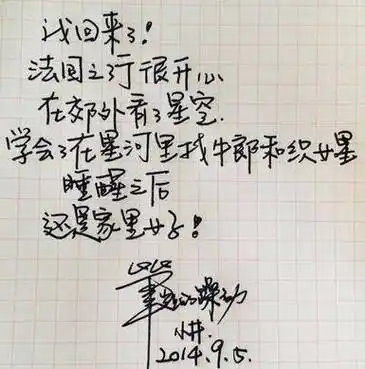 我回来了！
法国之行很开心
在郊外看了星空.
学会了在星河里找牛郎和织女星
睡醒之后
还是家里好！
的躁动
小井.
2014.9.5.